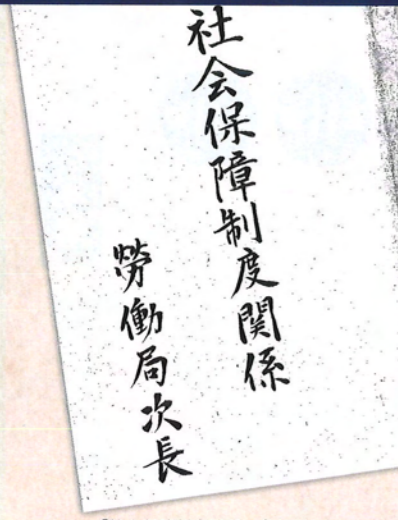 社会保障制度関係
勞働局次長